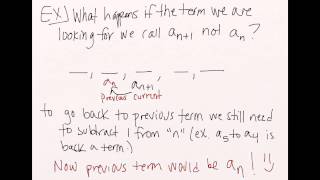 EX) What happens if the term we are
looking for we call aₙ₊₁ not aₙ?
__, __, __, __, __
aₙ aₙ₊₁
previous current
to go back to previous term we still need
to subtract 1 from "n" (ex. a₅ to a₄ is
back a term.)
Now previous term would be aₙ!